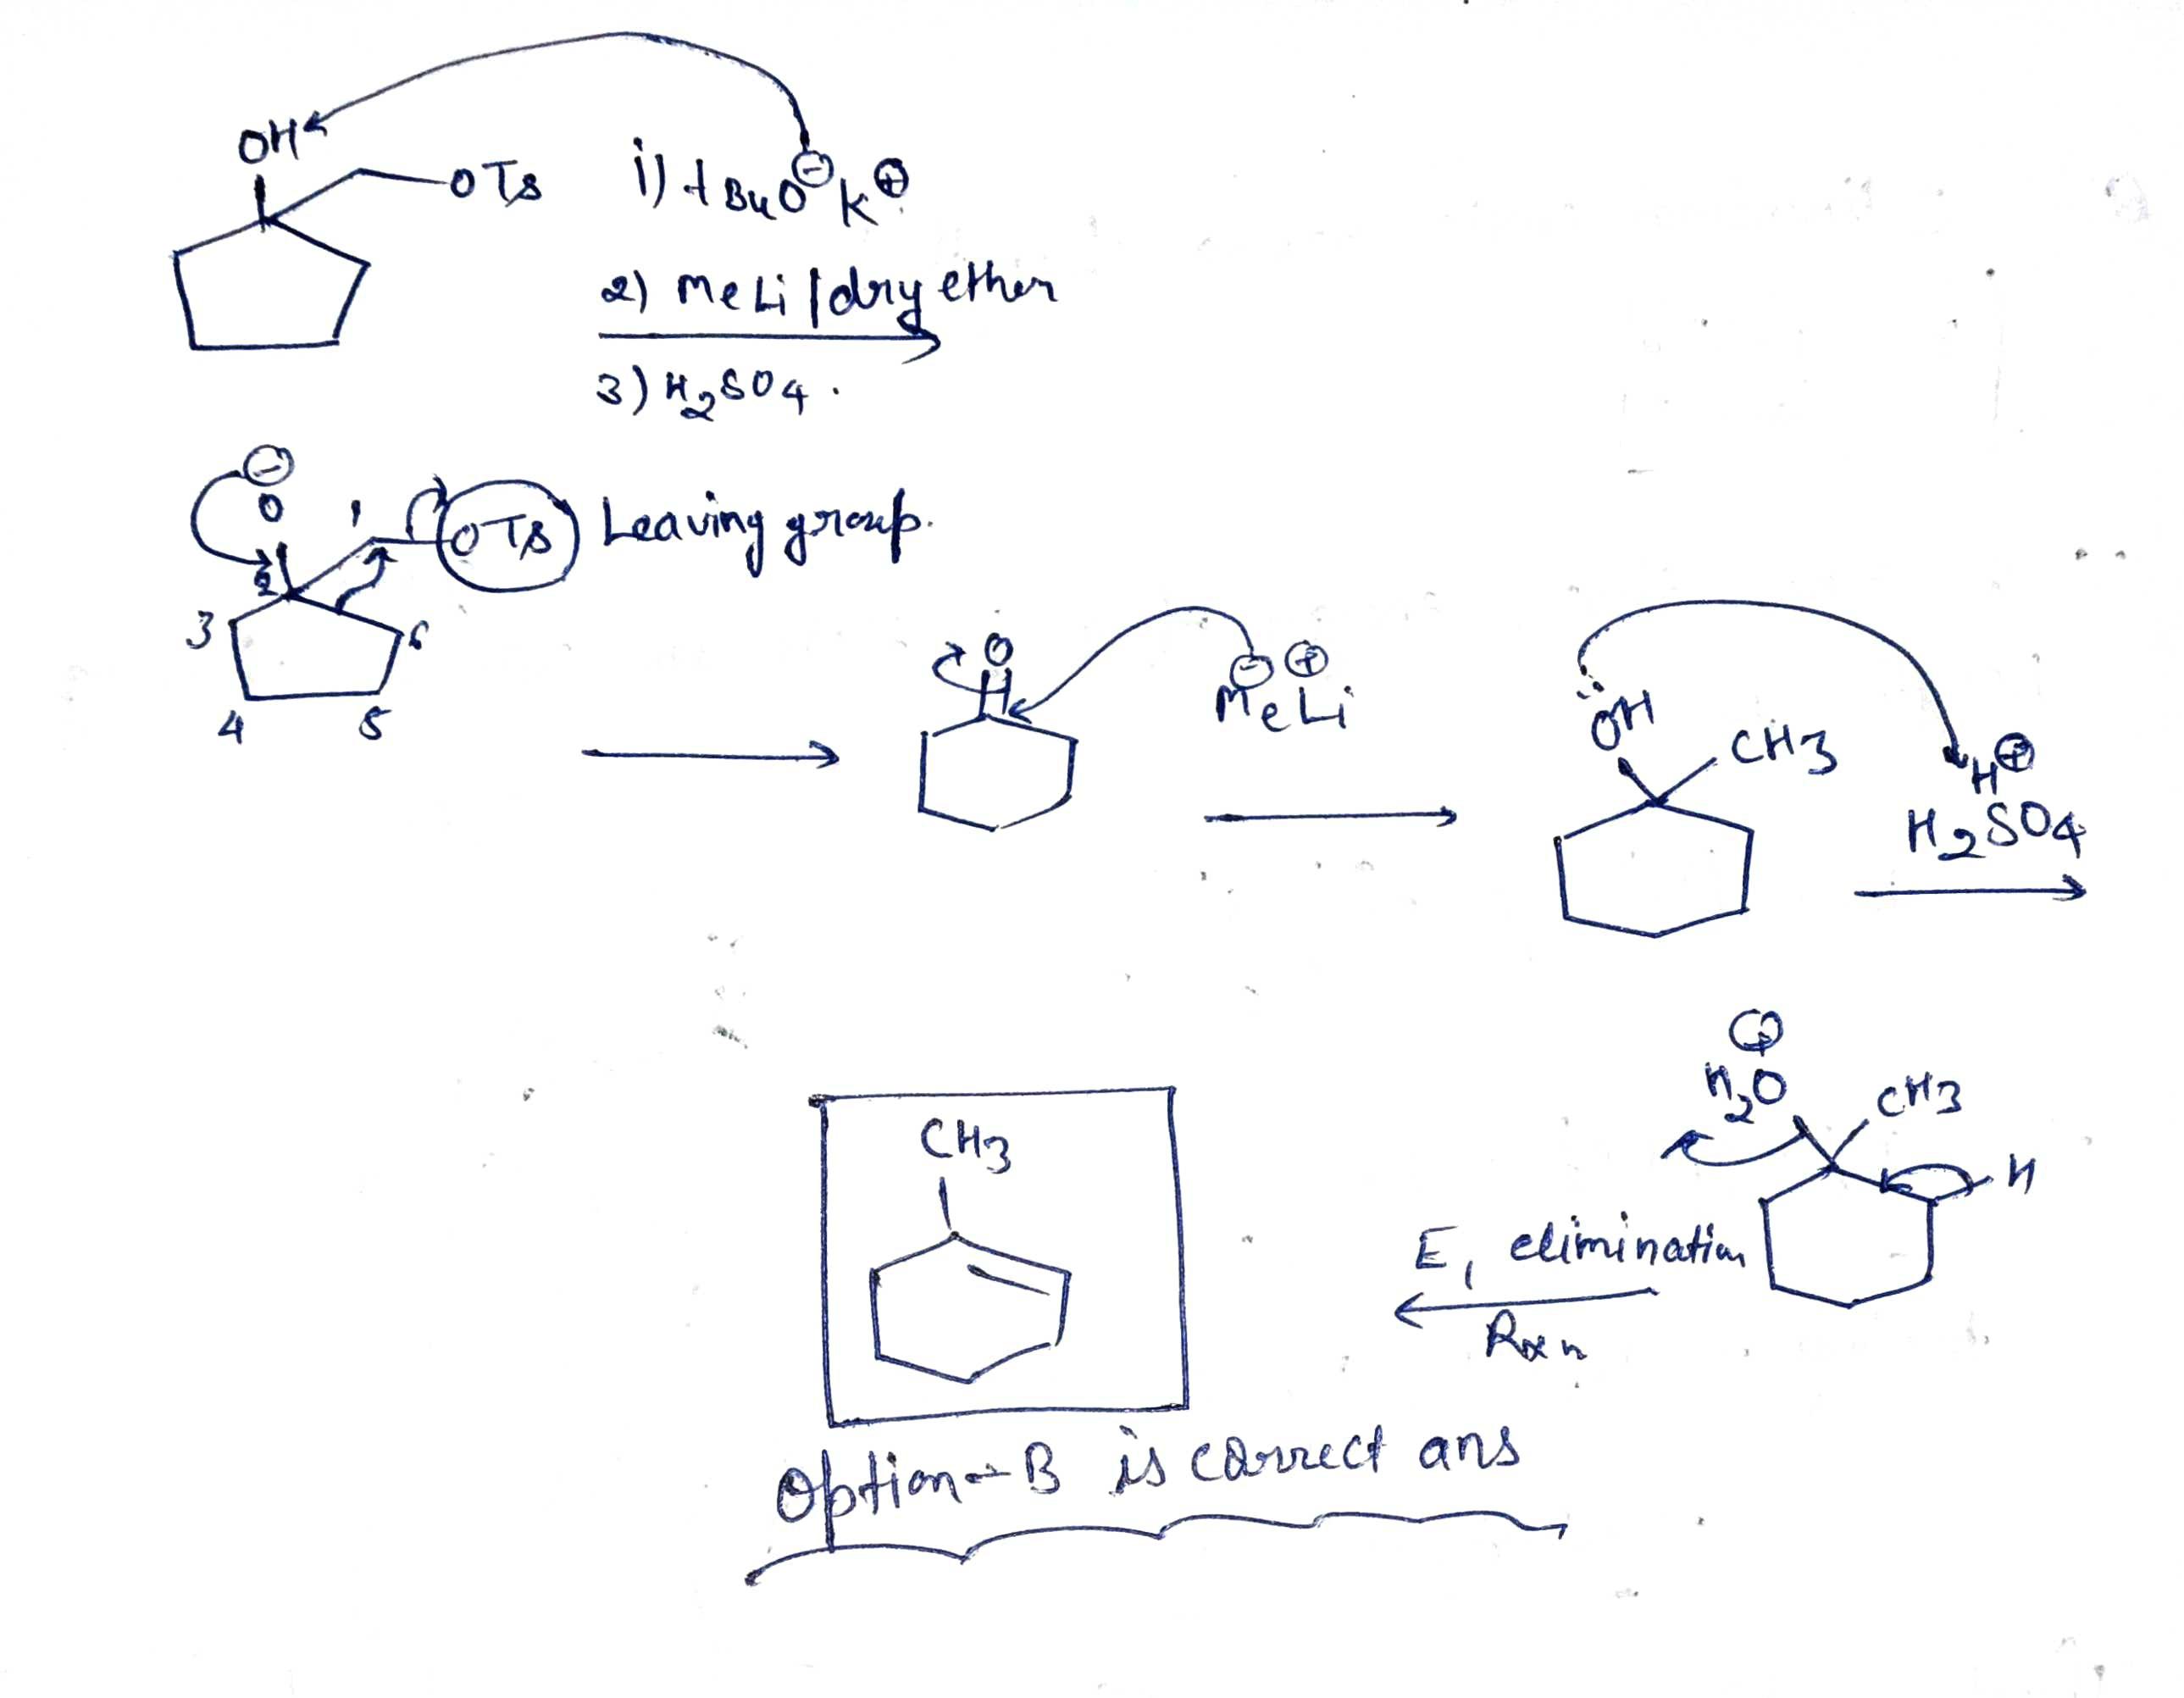 OH
OTs i) tBuO⊖ K⊕
2) MeLi / dry ether
3) H2SO4.
⊖
O
1 OTs Leaving group.
2
3 6
4 5
O ⊖ ⊕
MeLi
ÖH CH3 H⊕
H2SO4
⊕
H2O CH3
H
CH3
E1 elimination
Rxn
Option-B is correct ans